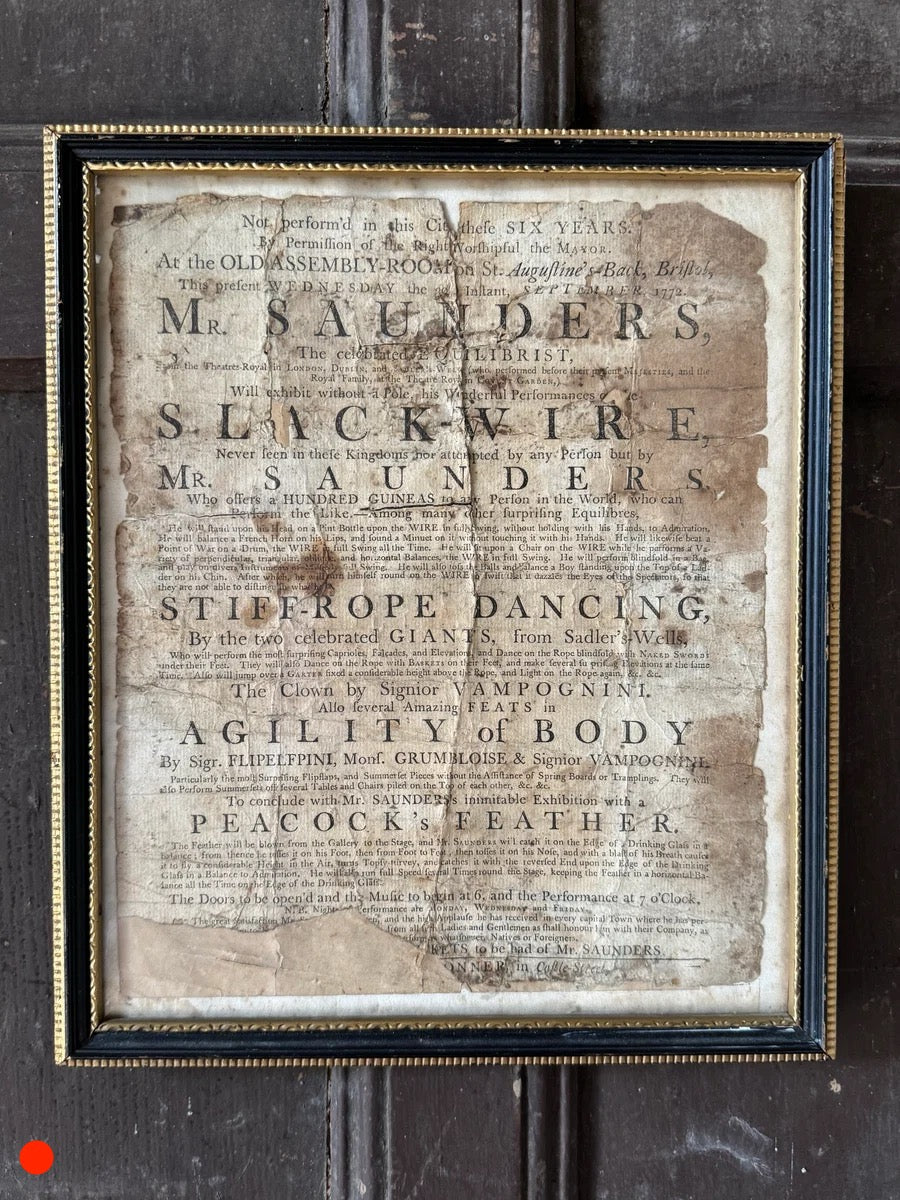 Not perform'd in this City these SIX YEARS.
By Permiſſion of the Right Worſhipful the MAYOR.
At the OLD ASSEMBLY-ROOM on St. Auguſtine's-Back, Briſtol,
This preſent WEDNESDAY the Inſtant, SEPTEMBER 1772.
MR. SAUNDERS,
The celebrated EQUILIBRIST,
From the Theatres-Royal in LONDON, DUBLIN, and (who performed before their preſent MAJESTIES, and the
Royal Family, at the Theatre Royal in GARDEN,)
Will exhibit without a Pole, his Wonderful Performances
SLACK-WIRE,
Never ſeen in theſe Kingdoms nor attempted by any Perſon but by
MR. SAUNDERS.
Who offers a HUNDRED GUINEAS to any Perſon in the World, who can
Perform the Like.—Among many other ſurpriſing Equilibres,
He will ſtand upon his Head on a Pint Bottle upon the WIRE in full Swing, without holding with his Hands, to Admiration.
He will balance a French Horn on his Lips, and ſound a Minuet on it without touching it with his Hands. He will likewiſe beat a
Point of War on a Drum, the WIRE in full Swing all the Time. He will ſit upon a Chair on the WIRE while he performs a Va-
riety of perpendicular, triangular, and horizontal Balances, the WIRE in full Swing. He will perform blindfold in a Bag,
and play on divers Inſtruments full Swing. He will alſo toſs the Balls and balance a Boy ſtanding upon the Top of a Lad-
der on his Chin. After which, he will turn himſelf round on the WIRE ſo ſwift that it dazzles the Eyes of the Spectators, ſo that
they are not able to diſtinguiſh
STIFF-ROPE DANCING,
By the two celebrated GIANTS, from Sadler's-Wells,
Who will perform the moſt ſurpriſing Caprioles, Falcades, and Elevations, and Dance on the Rope blindfold with NAKED SWORDS
under their Feet. They will alſo Dance on the Rope with BASKETS on their Feet, and make ſeveral ſurpriſing Elevations at the ſame
Time. Alſo will jump over a GARTER fixed a conſiderable height above the Rope, and Light on the Rope again, &c. &c.
The Clown by Signior VAMPOGNINI.
Alſo ſeveral Amazing FEATS in
AGILITY of BODY
By Sigr. FLIPELFPINI, Monſ. GRUMBLOISE & Signior VAMPOGNINI.
Particularly the moſt Surpriſing Flipflaps, and Summerſet Pieces without the Aſſiſtance of Spring Boards or Tramplings. They will
alſo Perform Summerſets off ſeveral Tables and Chairs piled on the Top of each other, &c. &c.
To conclude with Mr. SAUNDERS's inimitable Exhibition with a
PEACOCK's FEATHER.
The Feather will be blown from the Gallery to the Stage, and Mr. SAUNDERS will catch it on the Edge of a Drinking Glaſs in a
balance; from thence he toſſes it on his Foot, then from Foot to Foot, then toſſes it on his Noſe, and with a blaſt of his Breath cauſes
it to fly a conſiderable Height in the Air, turns Topſy-turvey, and catches it with the reverſed End upon the Edge of the Drinking
Glaſs in a Balance to Admiration. He will alſo run full Speed ſeveral Times round the Stage, keeping the Feather in a horizontal Ba-
lance all the Time on the Edge of the Drinking Glaſs.
The Doors to be open'd and the Muſic to begin at 6, and the Performance at 7 o'Clock,
N.B. Nights of Performance are MONDAY, WEDNESDAY and FRIDAY.
The great ſatisfaction Mr. and the high Applauſe he has received in every capital Town where he has per-
from all ſuch Ladies and Gentlemen as ſhall honour him with their Company, as
whatſoever, Natives or Foreigners.
KETS to be had of Mr. SAUNDERS.
ONNER, in Caſtle-Street.